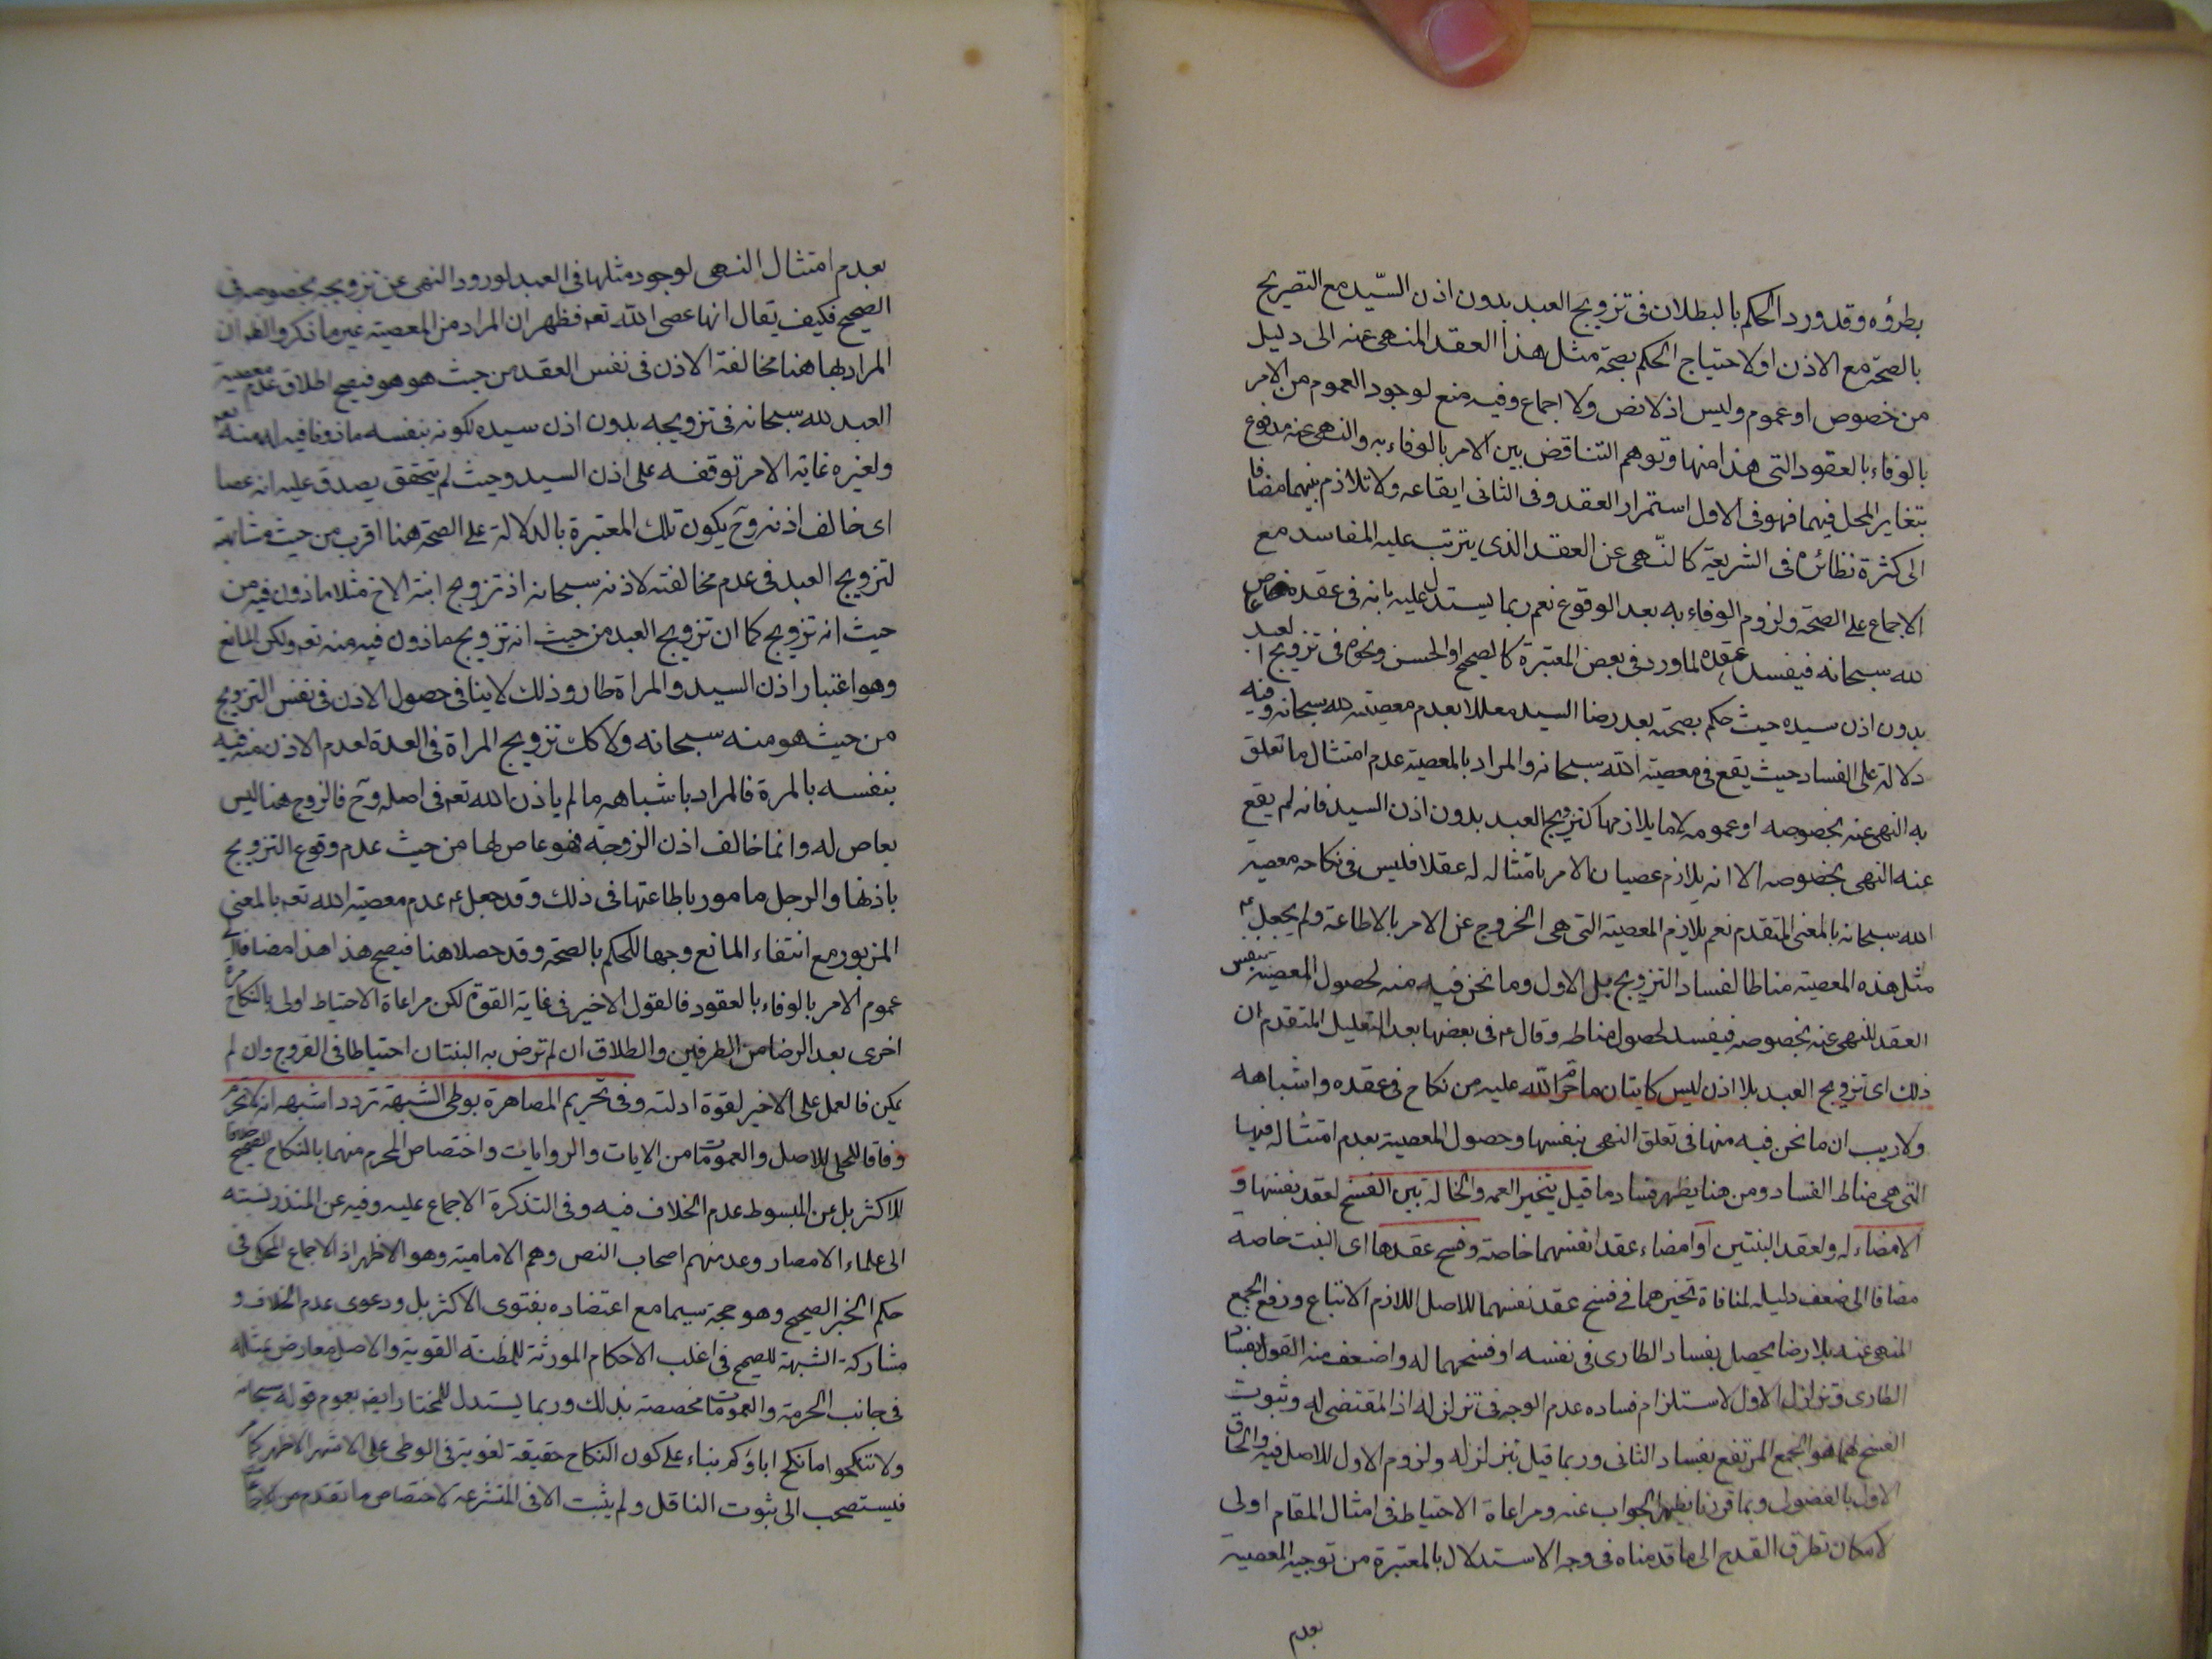 بطرؤه وقد ورد الحكم بالبطلان فى تزويج العبد بدون اذن السّيد مع التصريح
بالصحة مع الاذن اولاحتياج الحكم بصحة مثل هذا العقد المنهى عنه الى دليل
من خصوص او عموم وليس اذ لا نص ولا اجماع وفيه منع لوجود العموم من الامر
بالوفاء بالعقود التى هذا منها وتوهم التناقض بين الامر بالوفاء به والنهى عنه مدفوع
بتغاير المحل فيهما فهو فى الاول استمرار العقد وفى الثانى ايقاعه ولا تلازم بينهما مضافا
الى كثرة نظائره فى الشريعة كالنّهى عن العقد الذى يترتب عليه المفاسد مع
الاجماع على الصحة ولزوم الوفاء به بعد الوقوع نعم ربما يستدل عليه بانه فى عقده عاص
لله سبحانه فيفسد عقده لما ورد فى بعض المعتبرة كالصحيح او الحسن ونحوه فى تزويج العبد
بدون اذن سيده حيث حكم بصحته بعد رضا السيد معللا بعدم معصيته لله سبحانه وفيه
دلالة على الفساد حيث يقع فى معصية الله سبحانه والمراد بالمعصية عدم امتثال ما تعلق
به النهى عنه بخصوصه او عمومه لا ما يلازمها كتزويج العبد بدون اذن السيد فانه لم يقع
عنه النهى بخصوصه الا انه يلازم عصيان الامر بامتثاله له عقلا فليس فى نكاحه معصية
الله سبحانه بالمعنى المتقدم نعم يلازم المعصية التى هى الخروج عن الامر بالاطاعة ولم يجعل ع
مثل هذه المعصية مناطا لفساد التزويج بل الاول وما نحن فيه منه لحصول المعصية بنفس
العقد للنهى عنه بخصوصه فيفسد لحصول مناطه وقال ع فى بعضها بعد التعليل المتقدم ان
ذلك اى تزويج العبد بلا اذن ليس كاتيان ما حرّم الله عليه من نكاح فى عقده واشباهه
ولا ريب ان ما نحن فيه منها فى تعلق النهى بنفسها وحصول المعصية بعدم امتثاله فيها
التى هى مناط الفساد ومن هنا يظهر فساد ما قيل بتخيير العمه والخالة بين الفسخ لعقد نفسها و
الامضاء له ولعقد البنتين او امضاء عقد انفسهما خاصة وفسخ عقدها اى البنت خاصه
مضافا الى ضعف دليله لمنافاة تخييرهما فى فسخ عقد نفسهما للاصل اللازم الاتباع ورفع الجمع
المنهى عنه بلا رضا يحصل بفساد الطارى فى نفسه او فسخهما له واضعف منه القول بفساد
الطارى وتزلزل الاول لاستلزام فساده عدم الوجه فى تزلزله اذ المقتضى له وثبوت
الفسخ لهما هو الجمع المرتفع بفساد الثانى وربما قيل بتزلزله ولزوم الاول للاصل فيه والحاق
الاول بالفضولى وبما قررنا يظهر الجواب عنه ومراعاة الاحتياط فى امثال المقام اولى
لامكان تطرق القدح الى ما قدمناه فى وجه الاستدلال بالمعتبرة من توجيه المعصية
بعدم
بعدم امتثال النهى لوجود مثلها فى العبد لورود النهى عن تزويجه بخصوصه فى
الصحيح فكيف يقال انها عصى الله تعه فظهر ان المراد من المعصية غير ما ذكر والظه ان
المراد بها هنا مخالفة الاذن فى نفس العقد من حيث هو هو فيصح اطلاق عدم معصية
العبد لله سبحانه فى تزويجه بدون اذن سيده لكونه بنفسه ماذونا فيه له منه تعه
ولغيره غاية الامر توقفه على اذن السيد وحيث لم يتحقق يصدق عليه انه عصا
اى خالف اذنه وح يكون تلك المعتبرة بالدلالة على الصحة هنا اقرب من حيث مشابهة
لتزويج العبد فى عدم مخالفته لاذنه سبحانه اذ تزويج ابنة الاخ مثلا ماذون فيه من
حيث انه تزويج كما ان تزويج العبد من حيث انه تزويج ماذون فيه منه تعه ولكن المانع
وهو اعتبار اذن السيد والمراة طار وذلك لا ينافى حصول الاذن فى نفس التزويج
من حيث هو منه سبحانه ولا كك تزويج المراة فى العدة لعدم الاذن منه فيه
بنفسه بالمرة فالمراد باشباهه ما لم ياذن الله تعه فى اصله وح فالزوج هنا ليس
بعاص له وانما خالف اذن الزوجة فهو عاص لها من حيث عدم وقوع التزويج
باذنها والرجل مامور باطاعتها فى ذلك وقد جعل ع عدم معصية الله تعه بالمعنى
المزبور مع انتفاء المانع وجها للحكم بالصحة وقد حصلا هنا فيصح هذا هذا مضافا الى
عموم الامر بالوفاء بالعقود فالقول الاخير فى غاية القوة لكن مراعاة الاحتياط اولى بالنكاح مرة
اخرى بعد الرضا من الطرفين والطلاق ان لم ترض به البنتان احتياطا فى الفروج وان لم
يمكن فالعمل على الاخير لقوة ادلته وفى تحريم المصاهرة بوطى الشبهة تردد اشبهه انه لا يحرم
وفاقا للحلى للاصل والعمومات من الايات والروايات واختصاص المحرم منهما بالنكاح الصحيح خلافا
للاكثر بل عن المبسوط عدم الخلاف فيه وفى التذكرة الاجماع عليه وفيه عن المنذر نسبته
الى علماء الامصار وعد منهم اصحاب النص وهم الامامية وهو الاظهر اذ الاجماع المحكى فى
حكم الخبر الصحيح وهو حجة سيما مع اعتضاده بفتوى الاكثر بل ودعوى عدم الخلاف و
مشاركة الشبهة للصحيح فى اغلب الاحكام المورثة للمظنة القوية والاصل معارض بمثله
فى جانب الحرمة والعمومات مخصصة بذلك وربما يستدل للمختار ايضه بعموم قوله سبحانه
ولا تنكحوا ما نكح اباؤكم بناء على كون النكاح حقيقة لغوية فى الوطى على الاشهر الاظهر كما مر
فيستصحب الى ثبوت الناقل ولم يثبت الا فى المتشرعة لاختصاص ما تقدم من